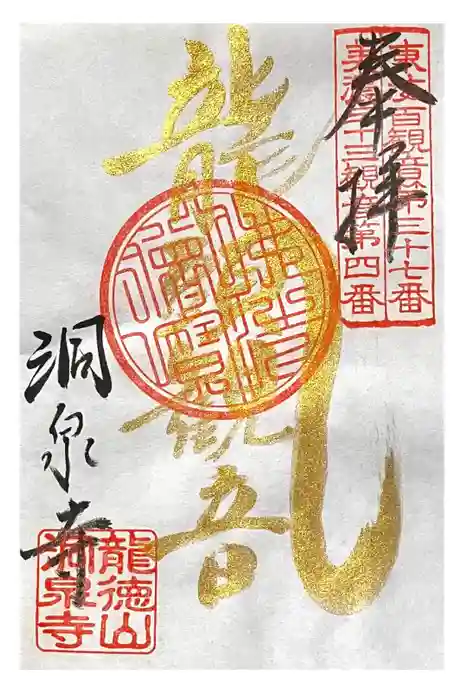 奉拝
東海百観音第三十七番
美濃三十三観音第四番
龍
観音
洞泉寺
龍徳山
洞泉寺